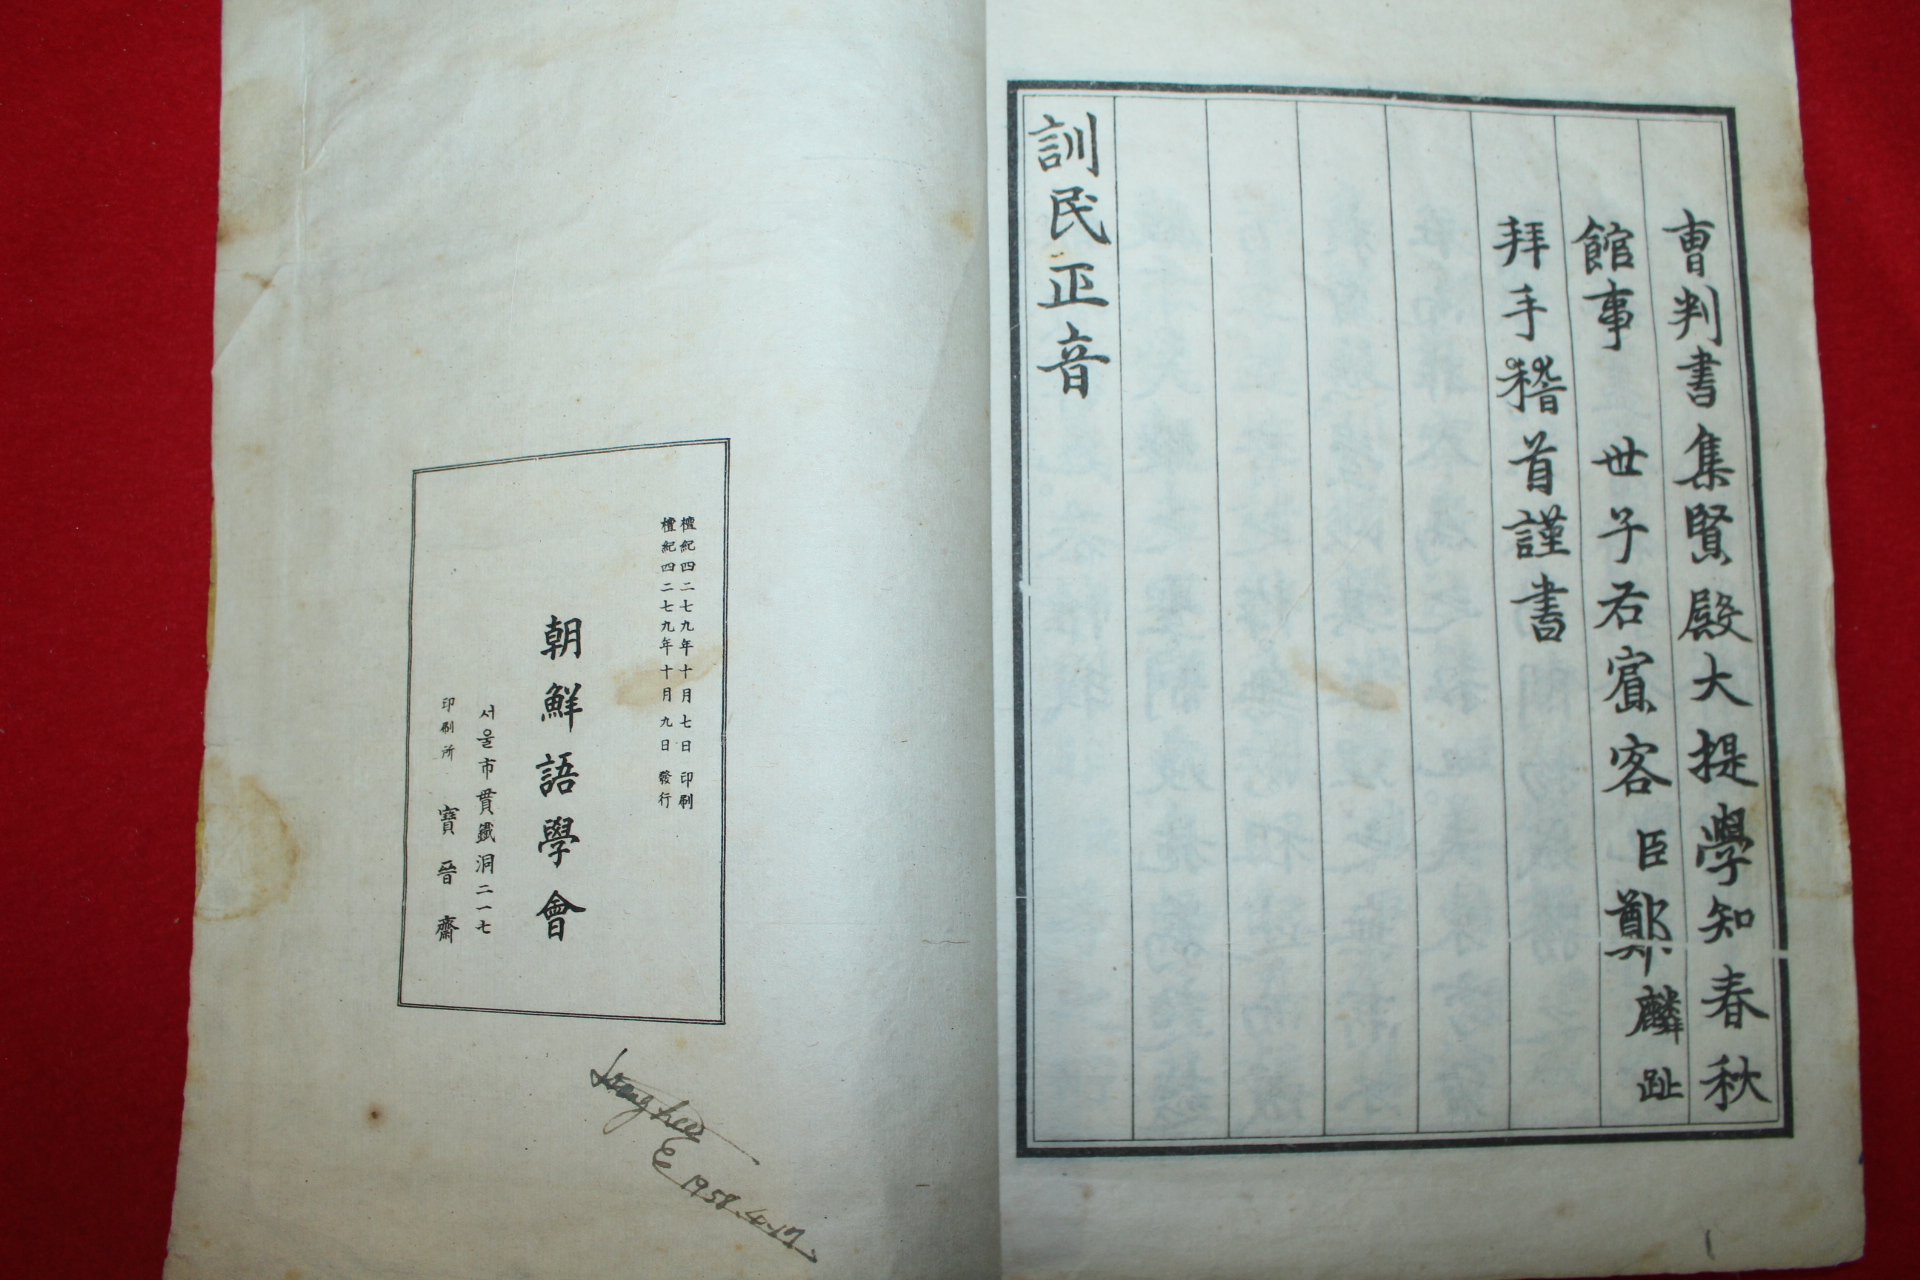 曺判書集賢殿大提學知春秋
館事 世子右賓客臣鄭麟趾
拜手稽首謹書
訓民正音
檀紀四二七九年十月七日 印刷
檀紀四二七九年十月九日 發行
朝鮮語學會
서울市貫鐵洞二一七
印刷所 寶晉齋
1958.4.17